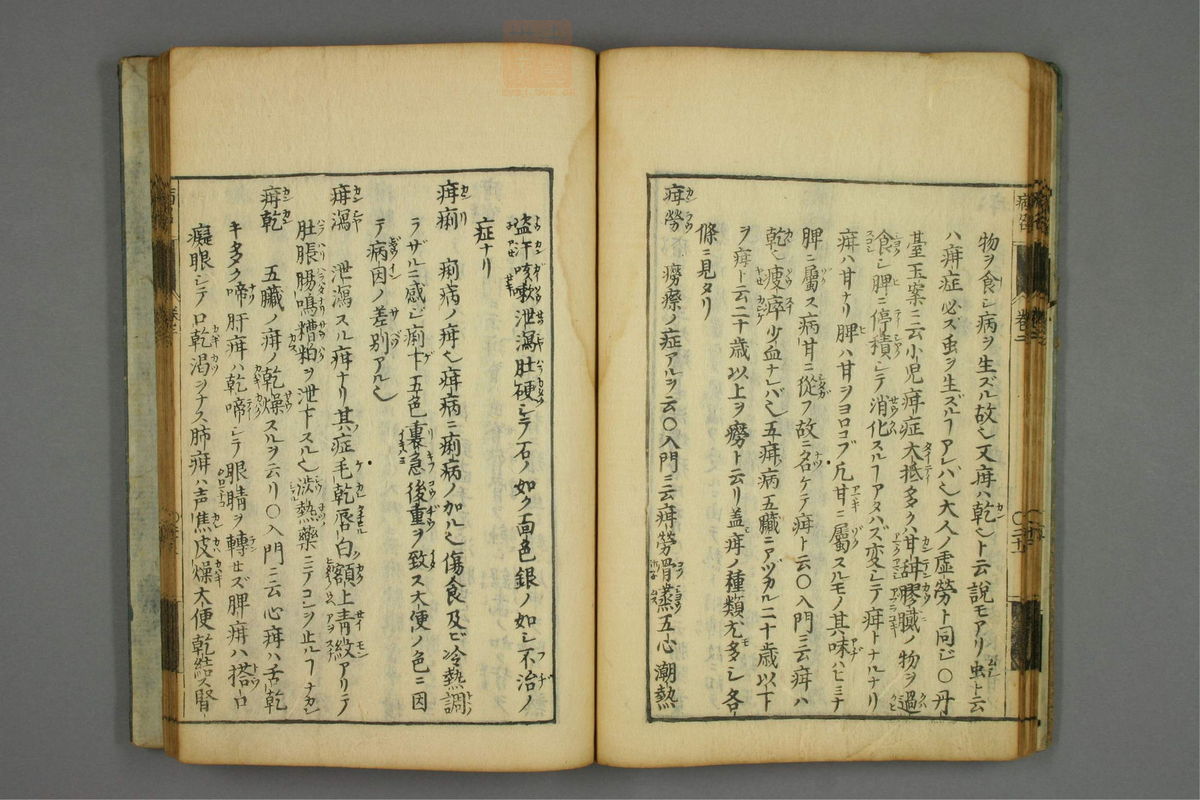 物ヲ食シ病ヲ生ズル故ニ又疳ハ乾也ト云説モアリ虫ト云
ハ疳症必ス虫ヲ生ズルヿアレバ也大人ノ虚勞ト同ジ〇丹
臺玉案ニ云小児疳症大抵多クハ甘甜膠膩ノ物ヲ過
食シ脾ニ停積シテ消化スルヿアタハズ変シテ疳トナルナリ
疳ハ甘ナリ脾ハ甘ヲヨロコブ凢甘ニ屬スルモノ其味ハヒミナ
脾ニ屬ス病甘ニ從フ故ニ名ケテ疳ト云〇入門ニ云疳ハ
乾也瘦瘁少血ナレバ也五疳病五臓ニアヅカル二十歳以下
ヲ疳ト云二十歳以上ヲ癆ト云リ盖疳ノ種類尤多シ各
條ニ見タリ
疳勞 癆瘵ノ症アルヲ云〇入門ニ云疳勞骨蒸五心潮熱
盗汗咳嗽泄瀉肚硬シテ石ノ如ク面色銀ノ如シ不治ノ
症ナリ
疳痢 痢病ノ疳也疳病ニ痢病ノ加ル也傷食及ビ冷熱調
ラザルニ感ジ痢下五色裏急後重ヲ致ス大便ノ色ニ因
テ病因ノ差別アル也
疳瀉 泄瀉スル疳ナリ其症毛乾唇白額上青紋アリテ
肚脹腸鳴糟粕ヲ泄下スル也渋熱藥ニテコレヲ止ルヿナカレ
疳乾 五臓ノ疳ノ乾燥スルヲ云リ〇入門ニ云心疳ハ舌乾
キ多ク啼肝疳ハ乾啼シテ眼睛ヲ轉セズ脾疳ハ搭口
癡眼シテ口乾渇ヲナス肺疳ハ声焦皮燥大便乾結ス腎